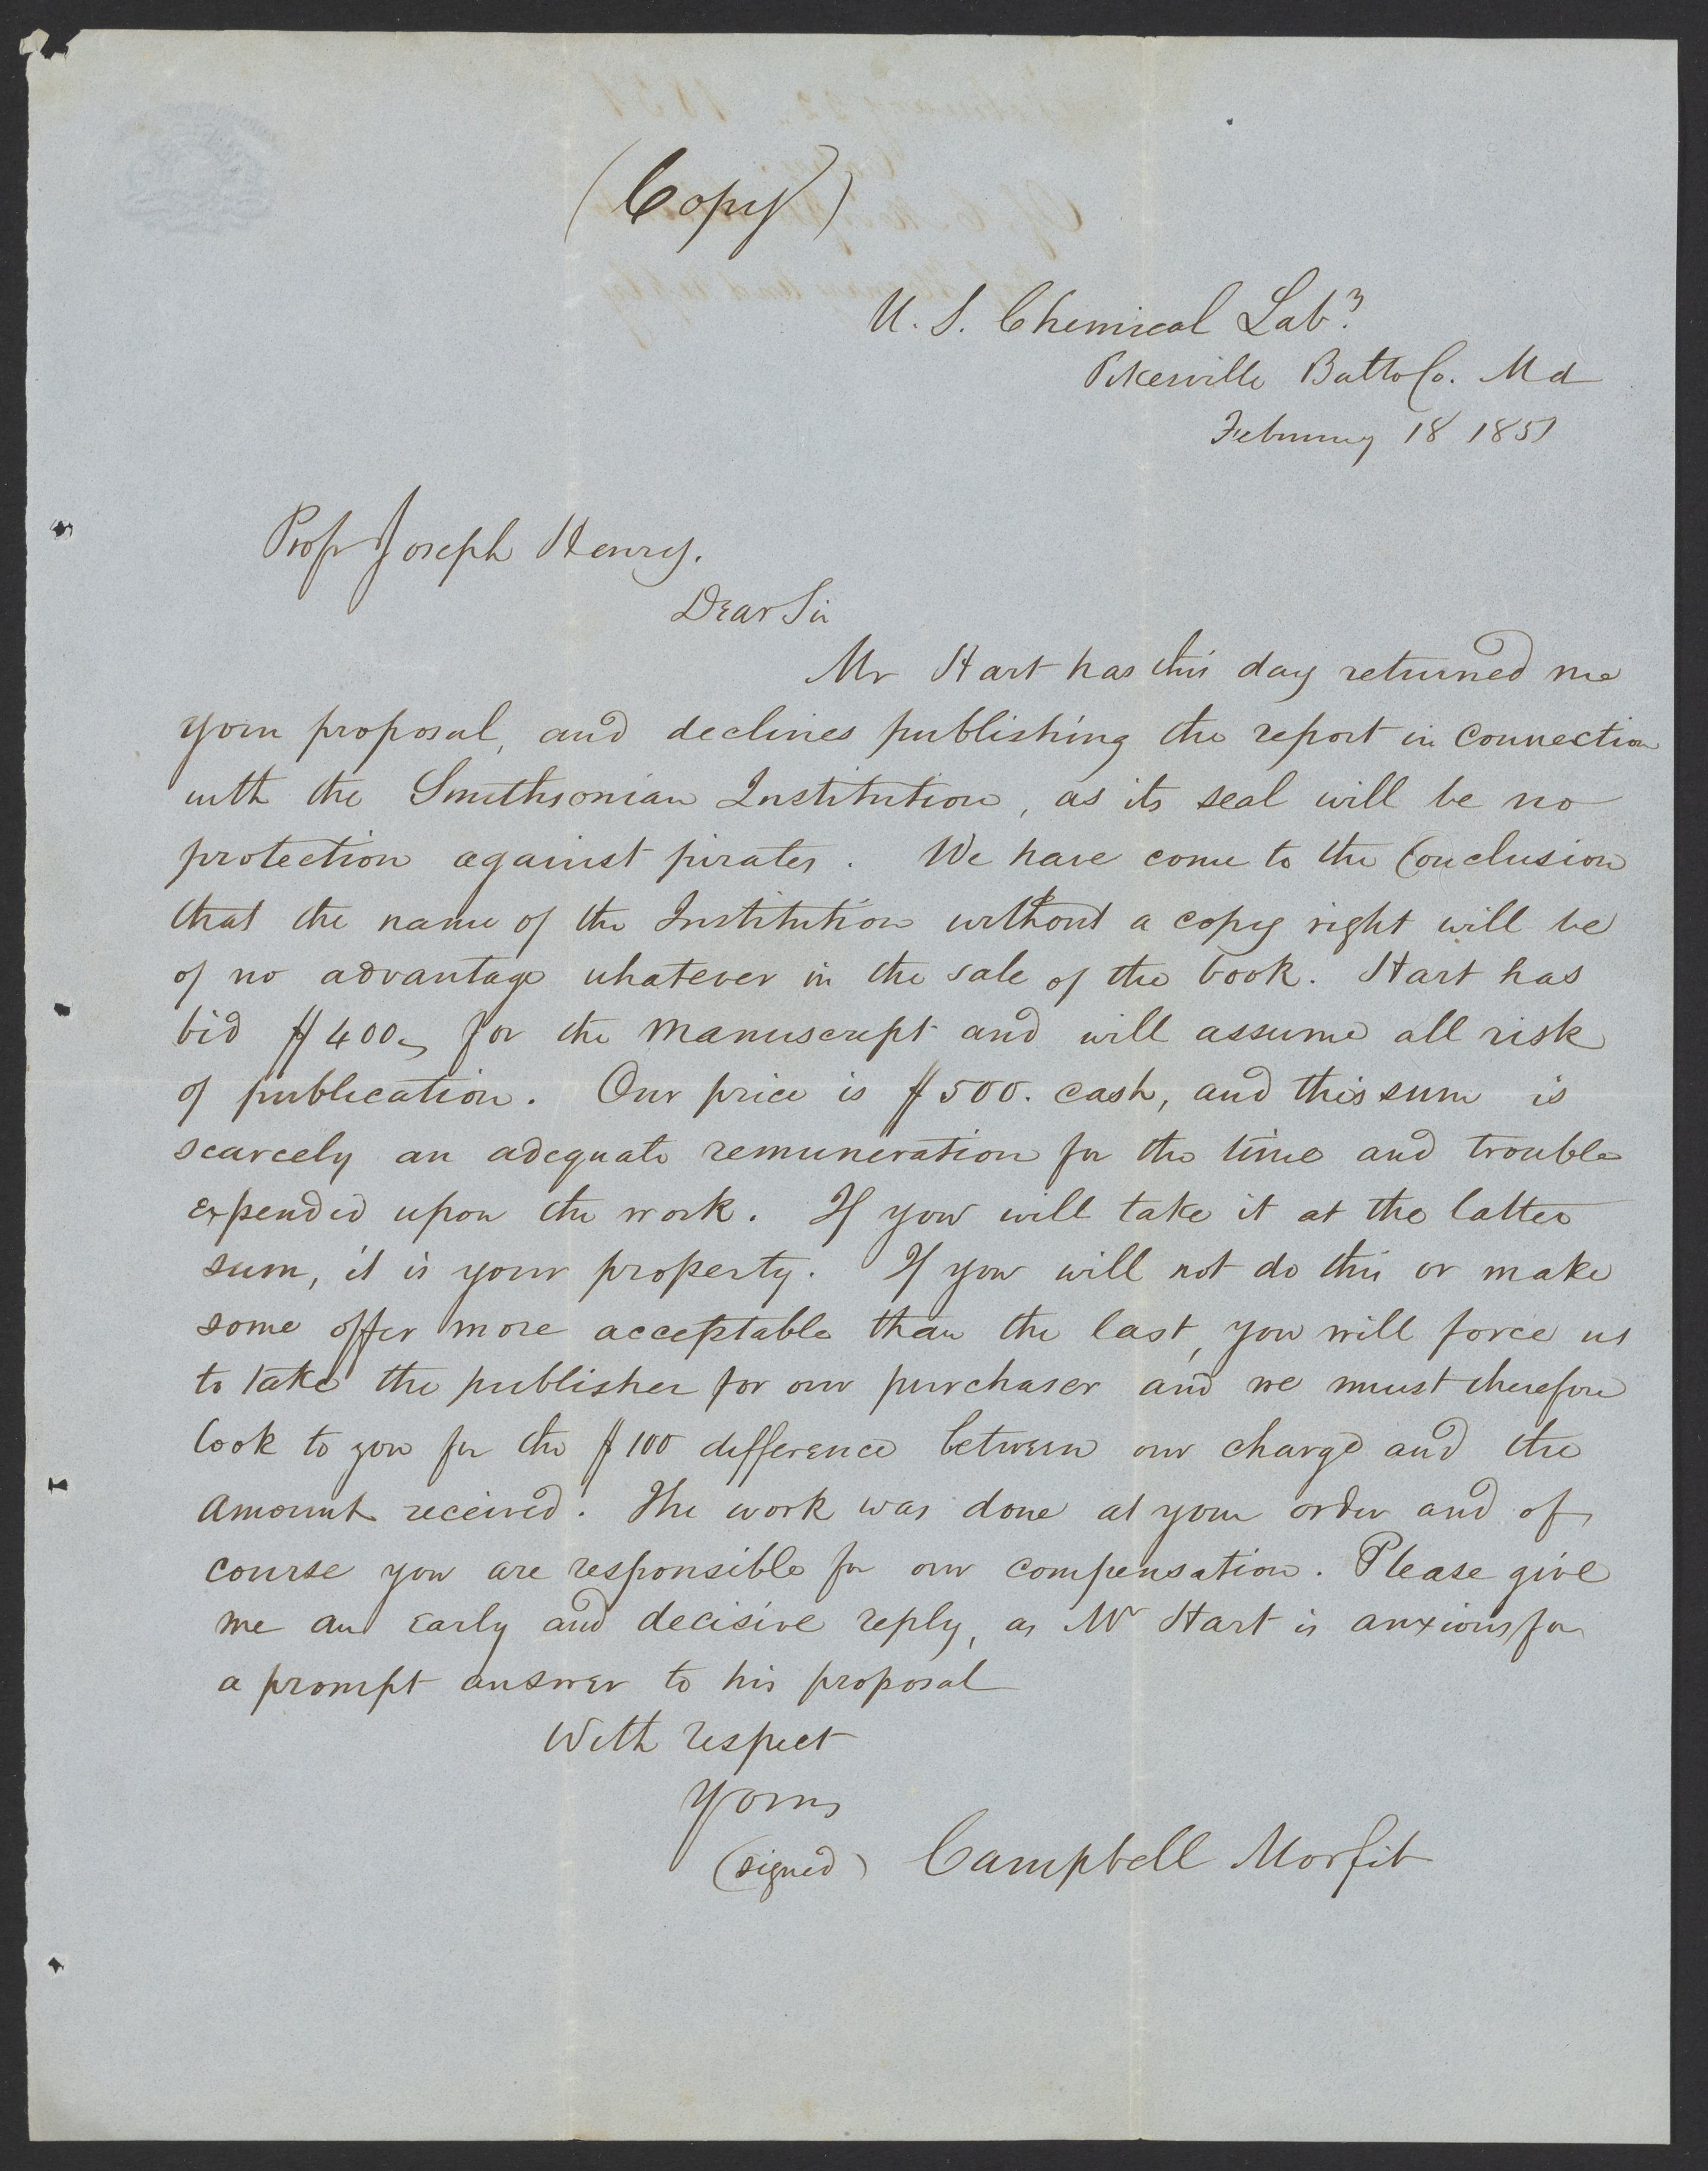 (Copy)
U. S. Chemical Laby.
Pikesville Balto Co. Md
February 18 1851
Prof Joseph Henry.
Dear Sir
Mr Hart has this day returned me
your proposal, and declines publishing the report in connection
with the Smithsonian Institution, as its seal will be no
protection against pirates. We have come to the Conclusion
that the name of the Institution without a copy right will be
of no advantage whatever in the sale of the book. Hart has
bid $400 for the manuscript and will assume all risk
of publication. Our price is $500. cash, and this sum is
scarcely an adequate remuneration for the time and trouble
expended upon the work. If you will take it at the latter
sum, it is your property. If you will not do this or make
some offer more acceptable than the last, you will force us
to take the publisher for our purchaser and we must therefore
look to you for the $100 difference between our charge and the
amount received. The work was done at your order and of
course you are responsible for our compensation. Please give
me an early and decisive reply, as Mr Hart is anxious for
a prompt answer to his proposal
With respect
Yours
(signed) Campbell Morfit